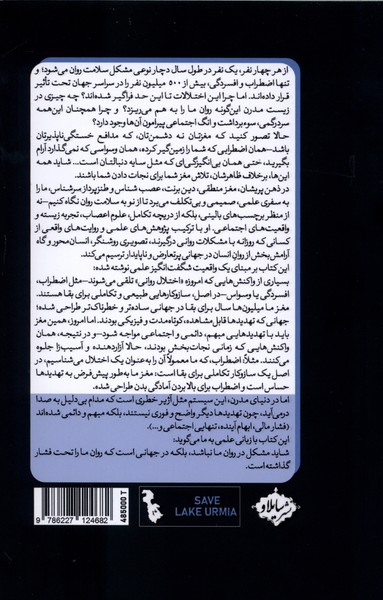 از هر چهار نفر، یک نفر در طول سال دچار نوعی مشکل سلامت روان می‌شود؛ و
تنها اضطراب و افسردگی، بیش از ۵۰۰ میلیون نفر را در سراسر جهان تحت تأثیر
قرار داده‌اند. اما چرا این اختلالات تا این حد فراگیر شده‌اند؟ چه چیزی در
زیست مدرن این‌گونه روان ما را به هم می‌ریزد؟ و چرا همچنان این‌همه
سردرگمی، سوءبرداشت و انگ اجتماعی پیرامون آن‌ها وجود دارد؟
حالا تصور کنید که مغزتان نه دشمن‌تان، که مدافع خستگی‌ناپذیرتان
باشد—همان اضطرابی که شما را زمین‌گیر کرده، همان وسواسی که نمی‌گذارد آرام
بگیرید، حتی همان بی‌انگیزگی‌ای که مثل سایه دنبالتان است... شاید همه
این‌ها، برخلاف ظاهرشان، تلاش مغز شما برای نجات دادن شما باشند.
در ذهن پریشان، مغز منطقی، دین برنت، عصب شناس و طنزپرداز سرشناس، ما را
به سفری علمی، صمیمی و بی‌تکلف می‌برد تا از نو به سلامت روان نگاه کنیم—نه
از منظر برچسب‌های بالینی، بلکه از دریچه تکامل، علوم اعصاب، تجربه زیسته و
واقعیت‌های اجتماعی. او با ترکیب پژوهش‌های علمی و روایت‌های واقعی از
کسانی که روزانه با مشکلات روانی درگیرند، تصویری روشنگر، انسان‌محور و گاه
آرامش‌بخش از روانِ انسان در جهانی پرتعارض و ناپایدار ترسیم می‌کند.
این کتاب بر مبنای یک واقعیت شگفت‌انگیز علمی نوشته شده:
بسیاری از واکنش‌هایی که امروزه «اختلال روانی» تلقی می‌شوند—مثل اضطراب،
افسردگی یا وسواس—در اصل، سازوکارهایی طبیعی و تکاملی برای بقا هستند.
مغز ما میلیون‌ها سال برای بقا در جهانی ساده‌تر و خطرناک‌تر طراحی شده؛
جهانی که تهدیدها قابل‌مشاهده، کوتاه‌مدت و فیزیکی بودند. اما امروز، همین مغز
باید با تهدیدهایی مبهم، دائمی و اجتماعی مواجه شود—و در نتیجه، همان
واکنش‌هایی که زمانی نجات‌بخش بودند، حالا آزاردهنده و آسیب‌زا جلوه
می‌کنند. مثلاً، اضطراب، که ما معمولاً آن را به‌عنوان یک اختلال می‌شناسیم، در
اصل یک سازوکار تکاملی برای بقا است: مغز ما به‌طور پیش‌فرض به تهدیدها
حساس است و اضطراب برای بالا بردن آمادگی بدن طراحی شده.
اما در دنیای مدرن، این سیستم مثل آژیر خطری است که مدام بی‌دلیل به صدا
درمی‌آید، چون تهدیدها دیگر واضح و فوری نیستند، بلکه مبهم و دائمی شده‌اند
(فشار مالی، ابهام آینده، تنهایی اجتماعی و...).
این کتاب با زبانی علمی به ما می‌گوید:
شاید مشکل در روان ما نباشد، بلکه در جهانی است که روان ما را تحت فشار
گذاشته است.
نشر سایلاو
SAVE
LAKE URMIA
485000 T
9 786227 124682